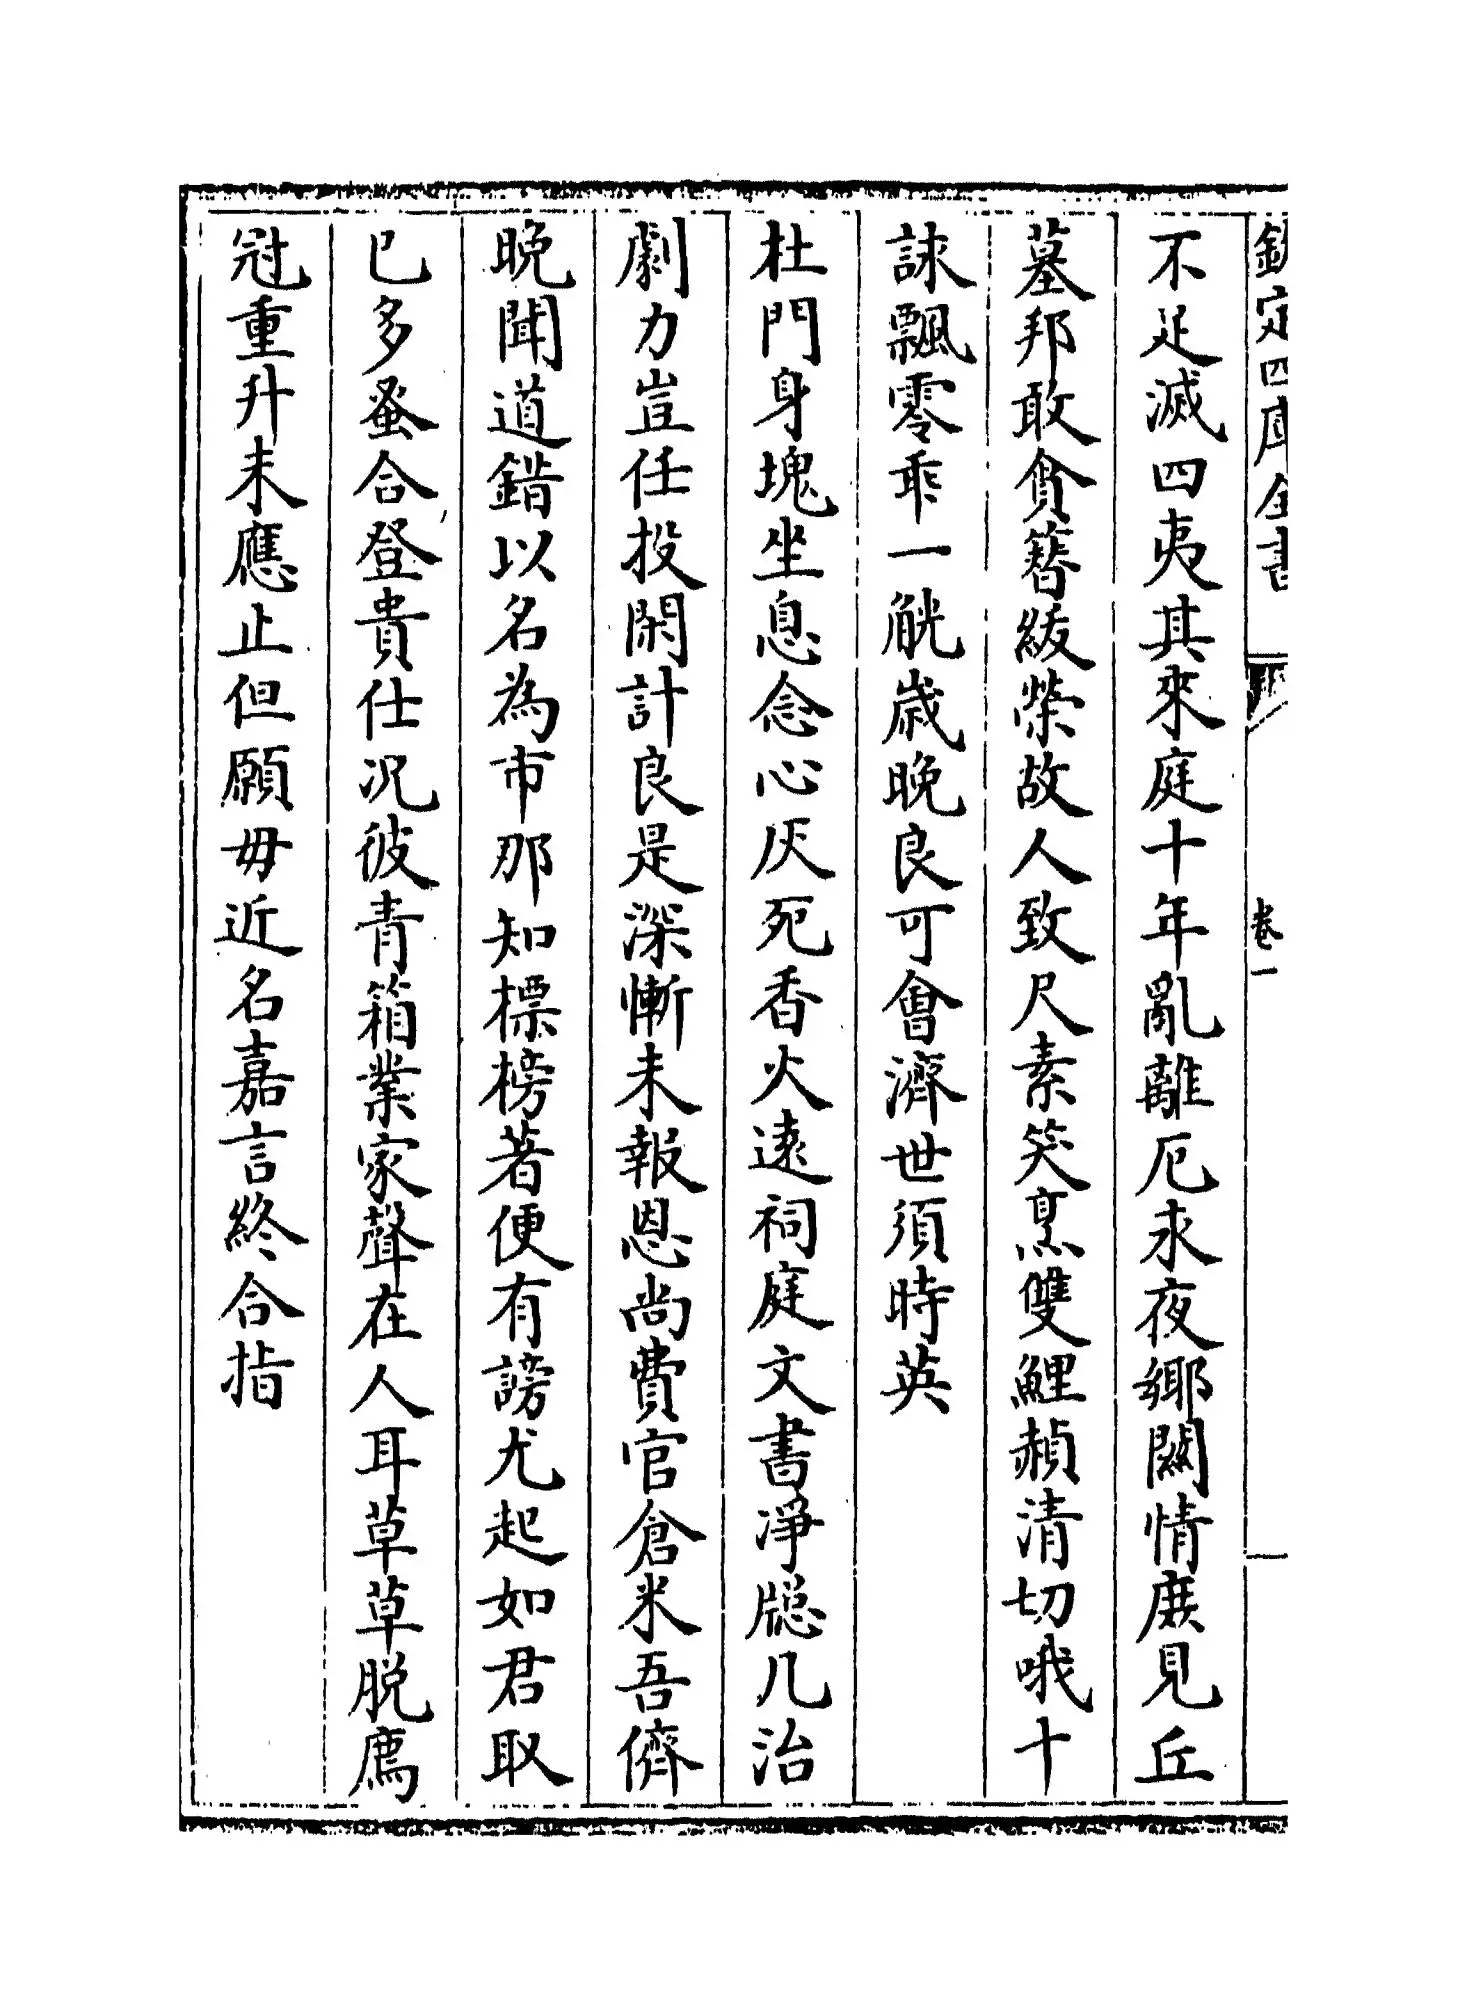 欽定四庫全書
卷一
不足滅四夷其來庭十年亂離厄永夜鄉闗情庶見丘
墓邦敢貪簪紱榮故人致尺素笑烹雙鯉赬清切哦十
詠飄零乖一觥歲晚良可會濟世須時英
杜門身塊坐息念心灰死香火遠祠庭文書凈牕几治
劇力豈任投閑計良是深慚未報恩尚費官倉米吾儕
晚聞道錯以名為市那知標榜著便有謗尤起如君取
已多蚤合登貴仕况彼青箱業家聲在人耳草草脱廌
冠重升未應止但願毋近名嘉言終合指